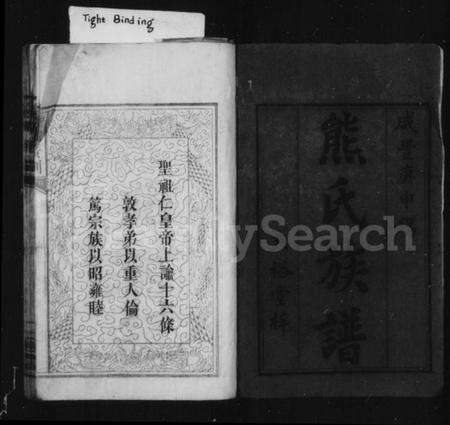 Tight Binding
咸豐庚申
熊氏族譜
聖祖仁皇帝上諭十六條
敦孝弟以重人倫
篤宗族以昭雍睦
MySearch